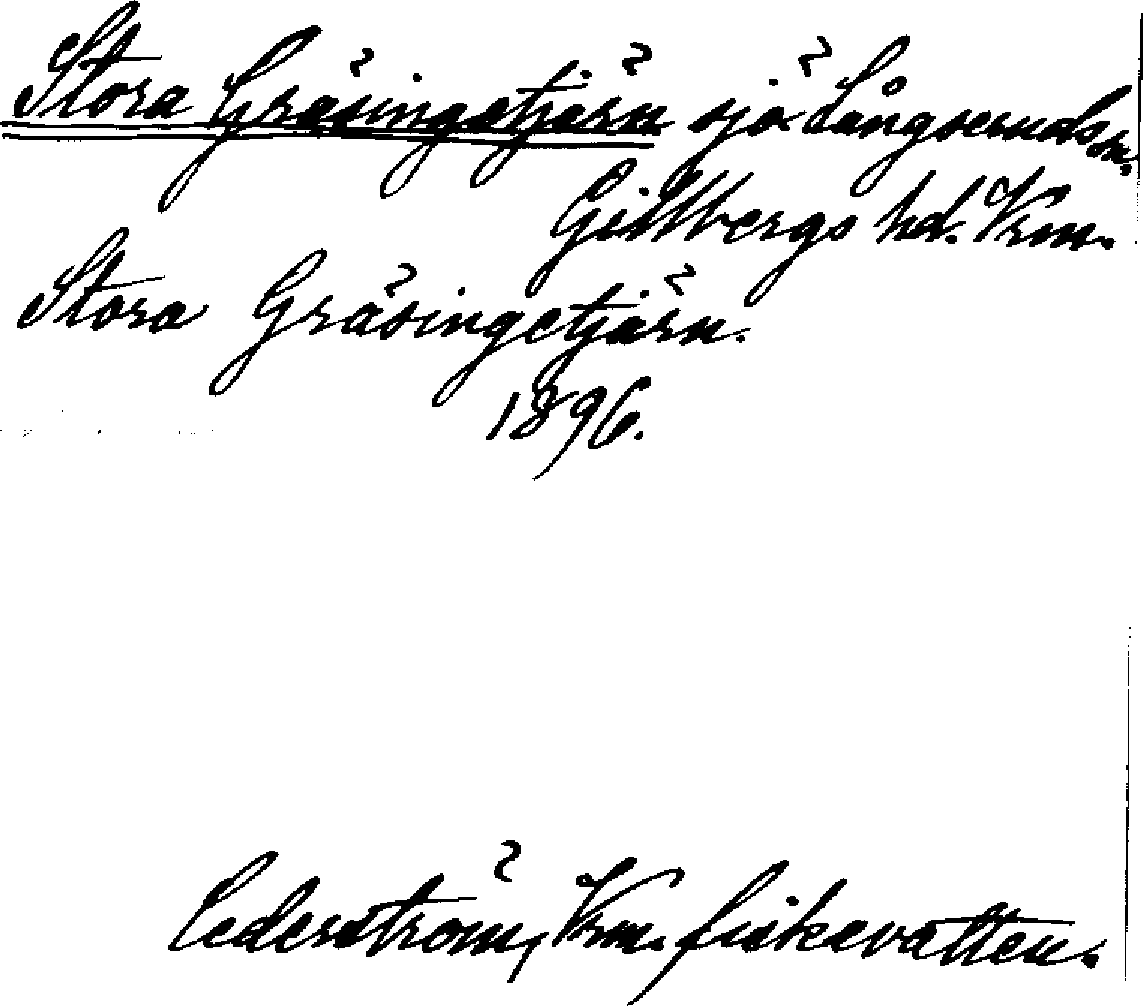 Stora Gräsingetjärn sjö Långseruds sn.
Gillbergs hd. Vrm.
Stora Gräsingetjärn.
1896.
Cederström, Vrm. fiskevatten.